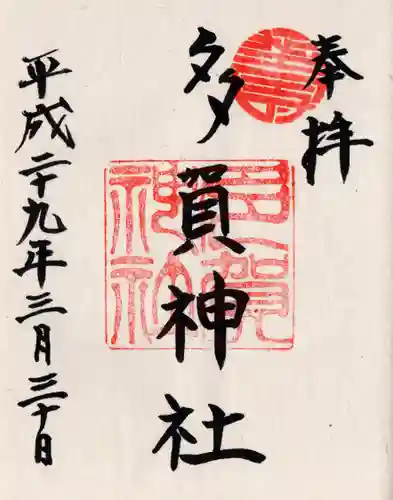 奉拝
多賀神社
平成二十九年三月三十日
多賀
神社